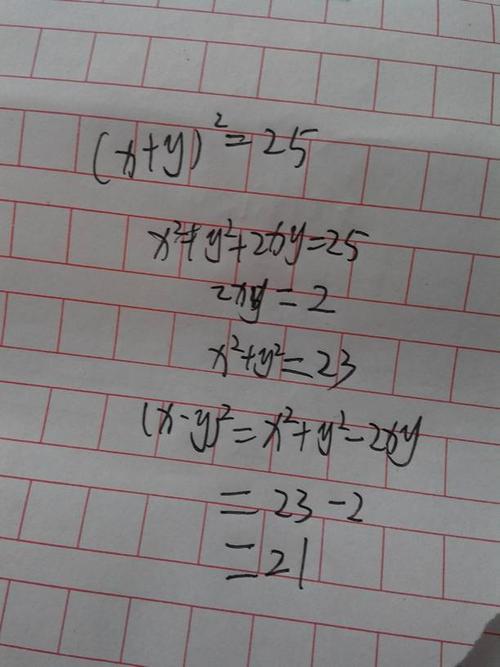 (x+y)²=25
x²+y²+2xy=25
2xy=2
x²+y²=23
(x-y)²=x²+y²-2xy
=23-2
=21